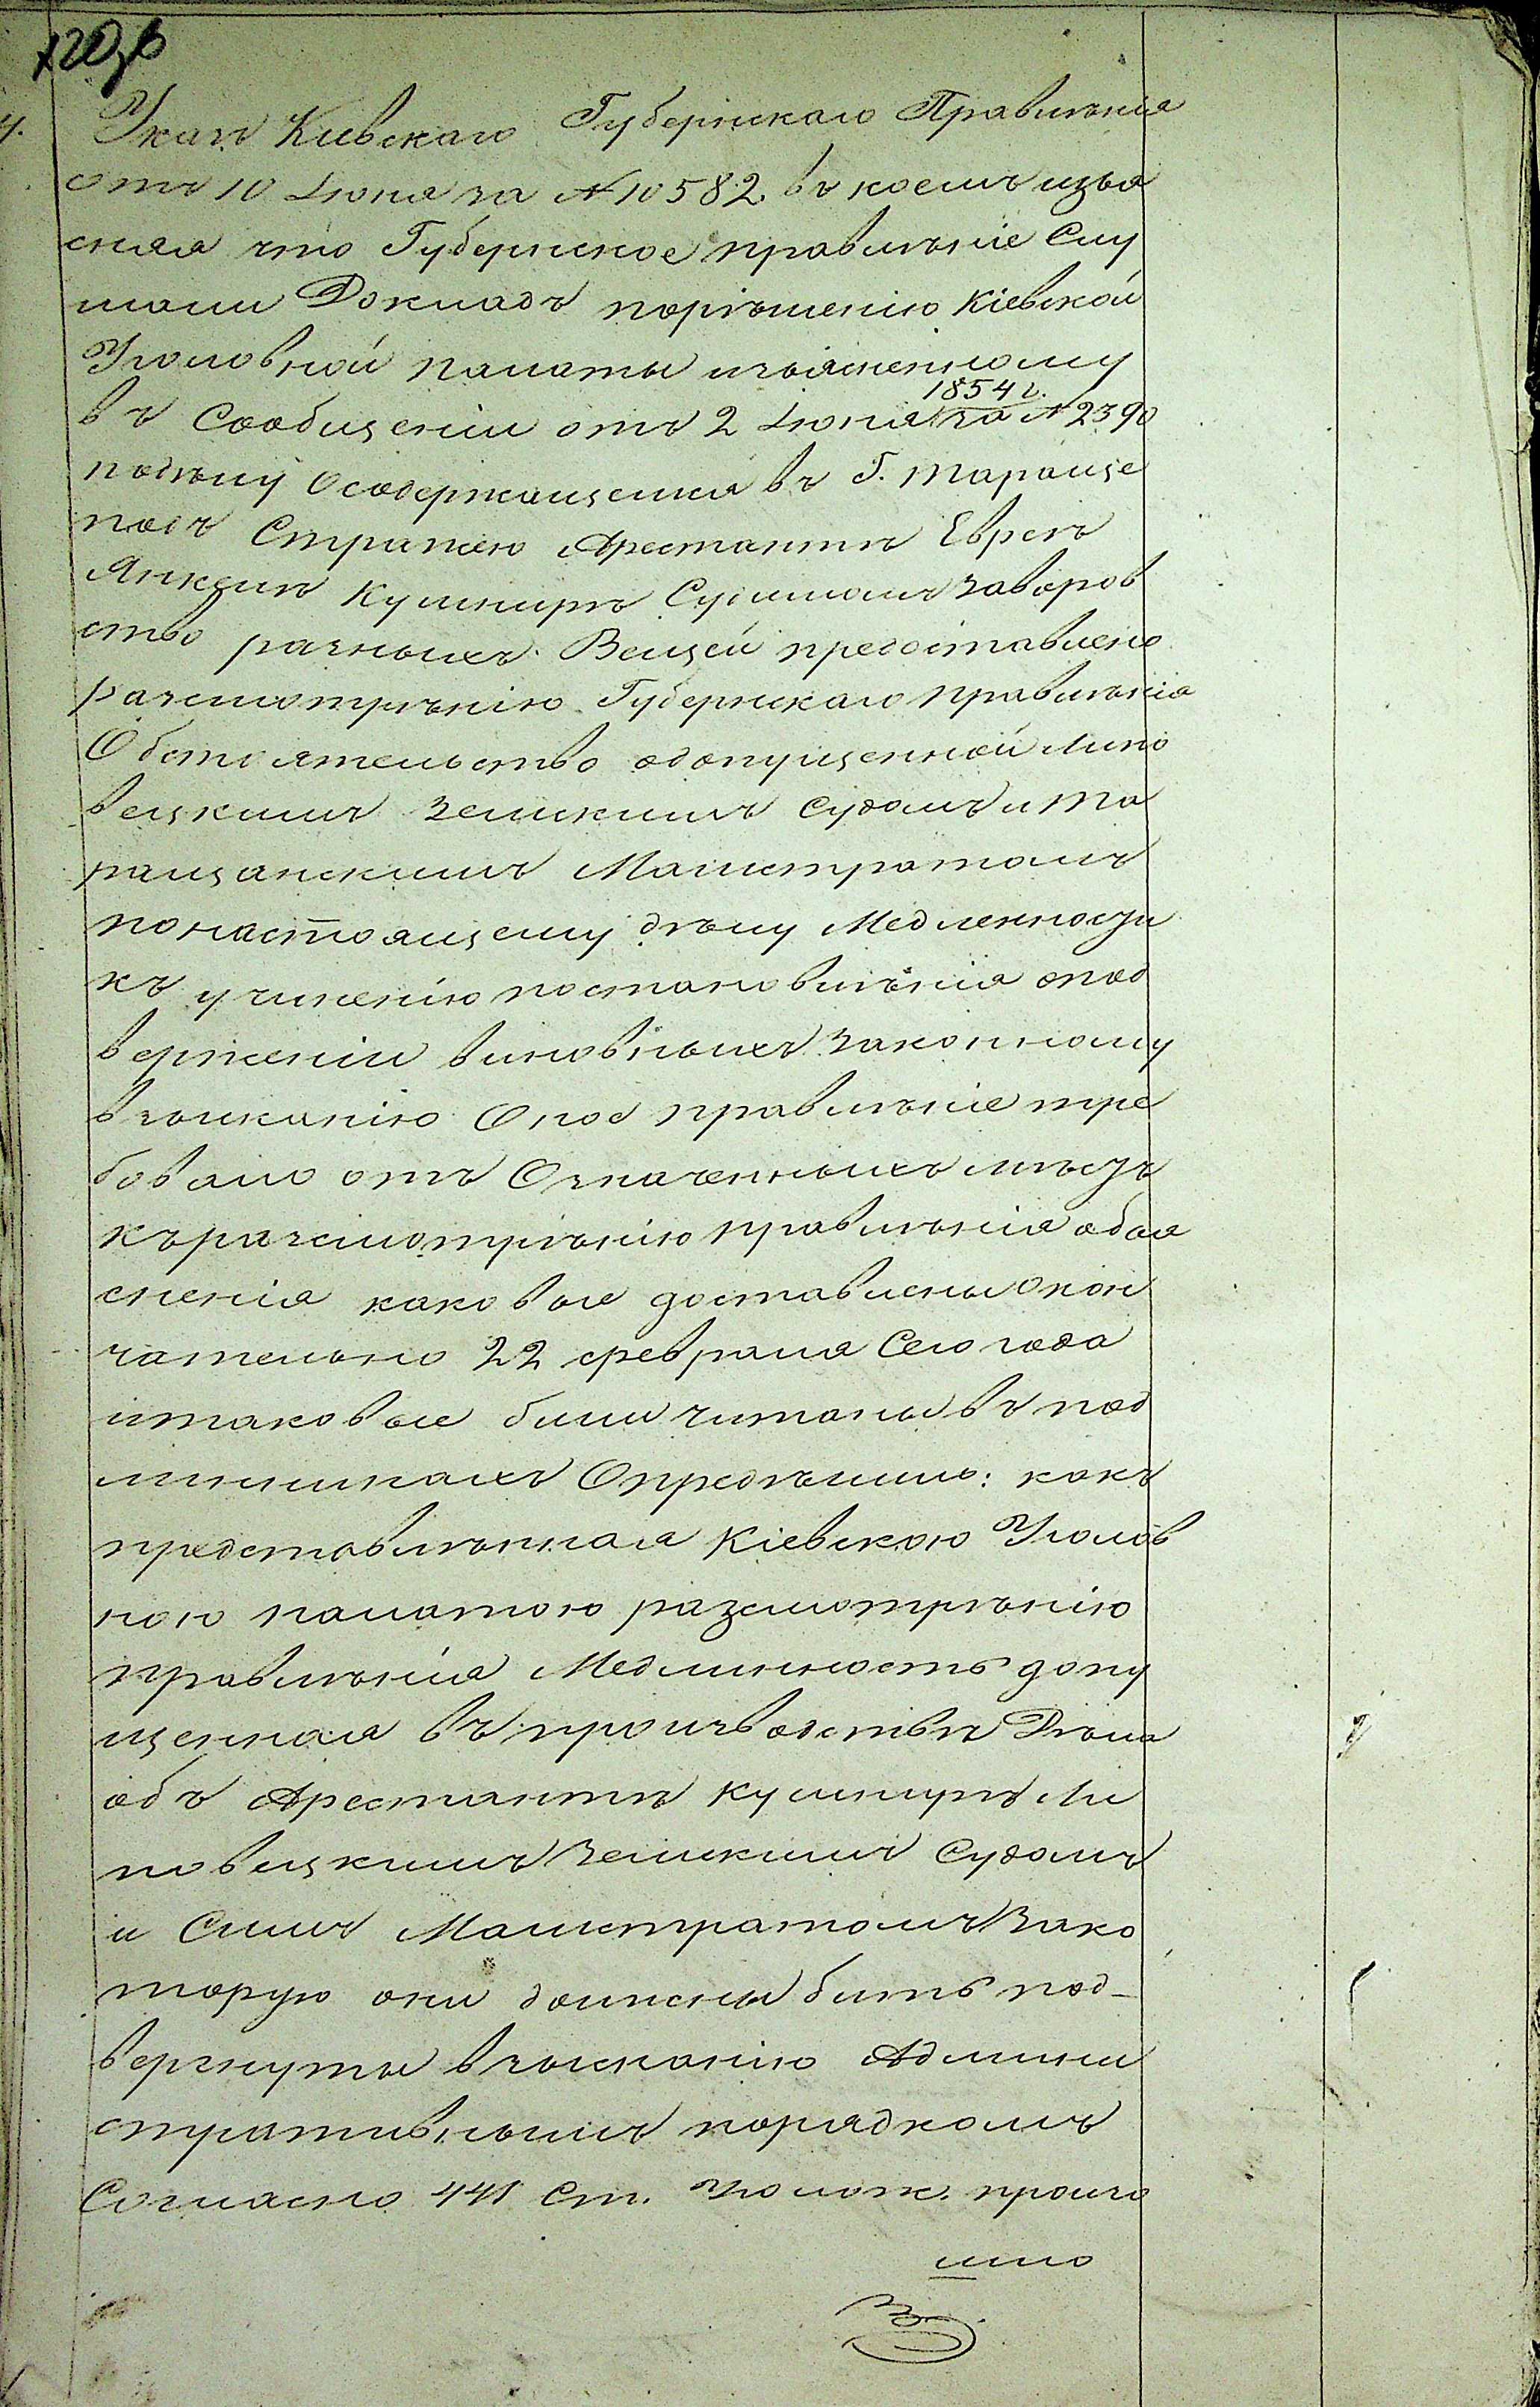 Указъ Киевскаго Губернскаго Правлѣнія
отъ 10 Іюня за № 10582. въ коемъ изъя
сняя что Губернское правлѣніе Слу
шали Докладъ порѣшенію Кіевской
Уголовной палаты изъясненному
1854 г.
въ Сообщеніи отъ 2 Іюня за № 2390
подѣлу Осодержащемся въ Г. Тараще
подъ Стражею Арестантѣ Евреѣ
Янкелѣ Кушнирѣ Судимомъ Заворов
ство разныхъ Вещей предоставлено
разсмотрѣнію Губернскаго правлѣнія
Обстоятельство одопущенной Липо
вецкимъ Земскимъ Судомъ и Та
ращанскимъ Магистратомъ
понастоящему дѣлу Медленности
къ учиненію постановлѣнія опод
верженіи виновныхъ законному
взысканію Оное правлѣніе тре
бовало отъ Означенныхъ мѣстъ
къразсмотрѣнію правлѣнія объя
сненія каковые доставлены Окон
чательно 22 февраля Сего года
итаковые были читаны въ под
линникахъ Опредѣлило: какъ
представлѣнная Кіевскою Уголов
ною палатою разсмотрѣнію
правлѣнія Медлинность допу
щенная въ производствѣ Дѣла
объ Арестантѣ Кушнирѣ Ли
повецкимъ Земскимъ Судомъ
и Симъ Магистратомъ Зако
торую они должны быть под-
вергнуты взысканію Админи
стративнымъ порядкомъ
Согласно 441 Ст. Уголож. произо
шло